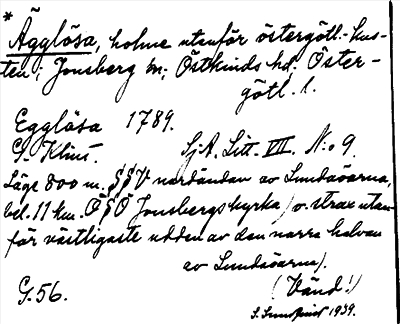 * Ägglösa, holme utanför östergötl.-kus-
ten i Jonsberg sn; Östkinds hd; Öster-
götl. l.
Egglösa 1789.
G. Klint. Sj.A. Litt. VII. N:o 9.
Läge 800 m. S§V nordändan av Lundaöarna,
bel. 11 km. Ö§Ö Jonsbergs kyrka / o. strax utan-
för västligaste udden av den norra halvan
av Lundaöarna).
G. 56. (Vänd!)
S. 1939.